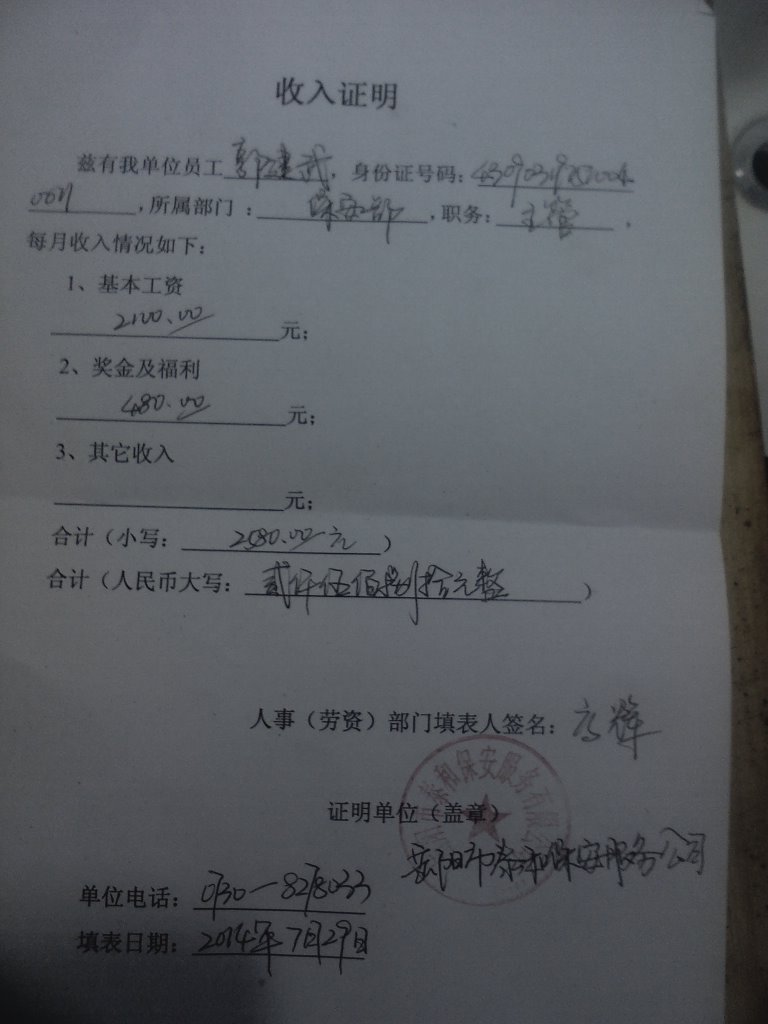 收入证明
兹有我单位员工郭建武，身份证号码：
，所属部门：保安部，职务：主管，
每月收入情况如下：
1、基本工资
2100.00元；
2、奖金及福利
480.00元；
3、其它收入
元；
合计（小写：2580.00元）
合计（人民币大写：贰仟伍佰捌拾元整）
人事（劳资）部门填表人签名：高辉
泰和保安服务有限
证明单位（盖章）
岳阳市泰和保安服务公司
单位电话：0730-8278033
填表日期：2014年7月29日